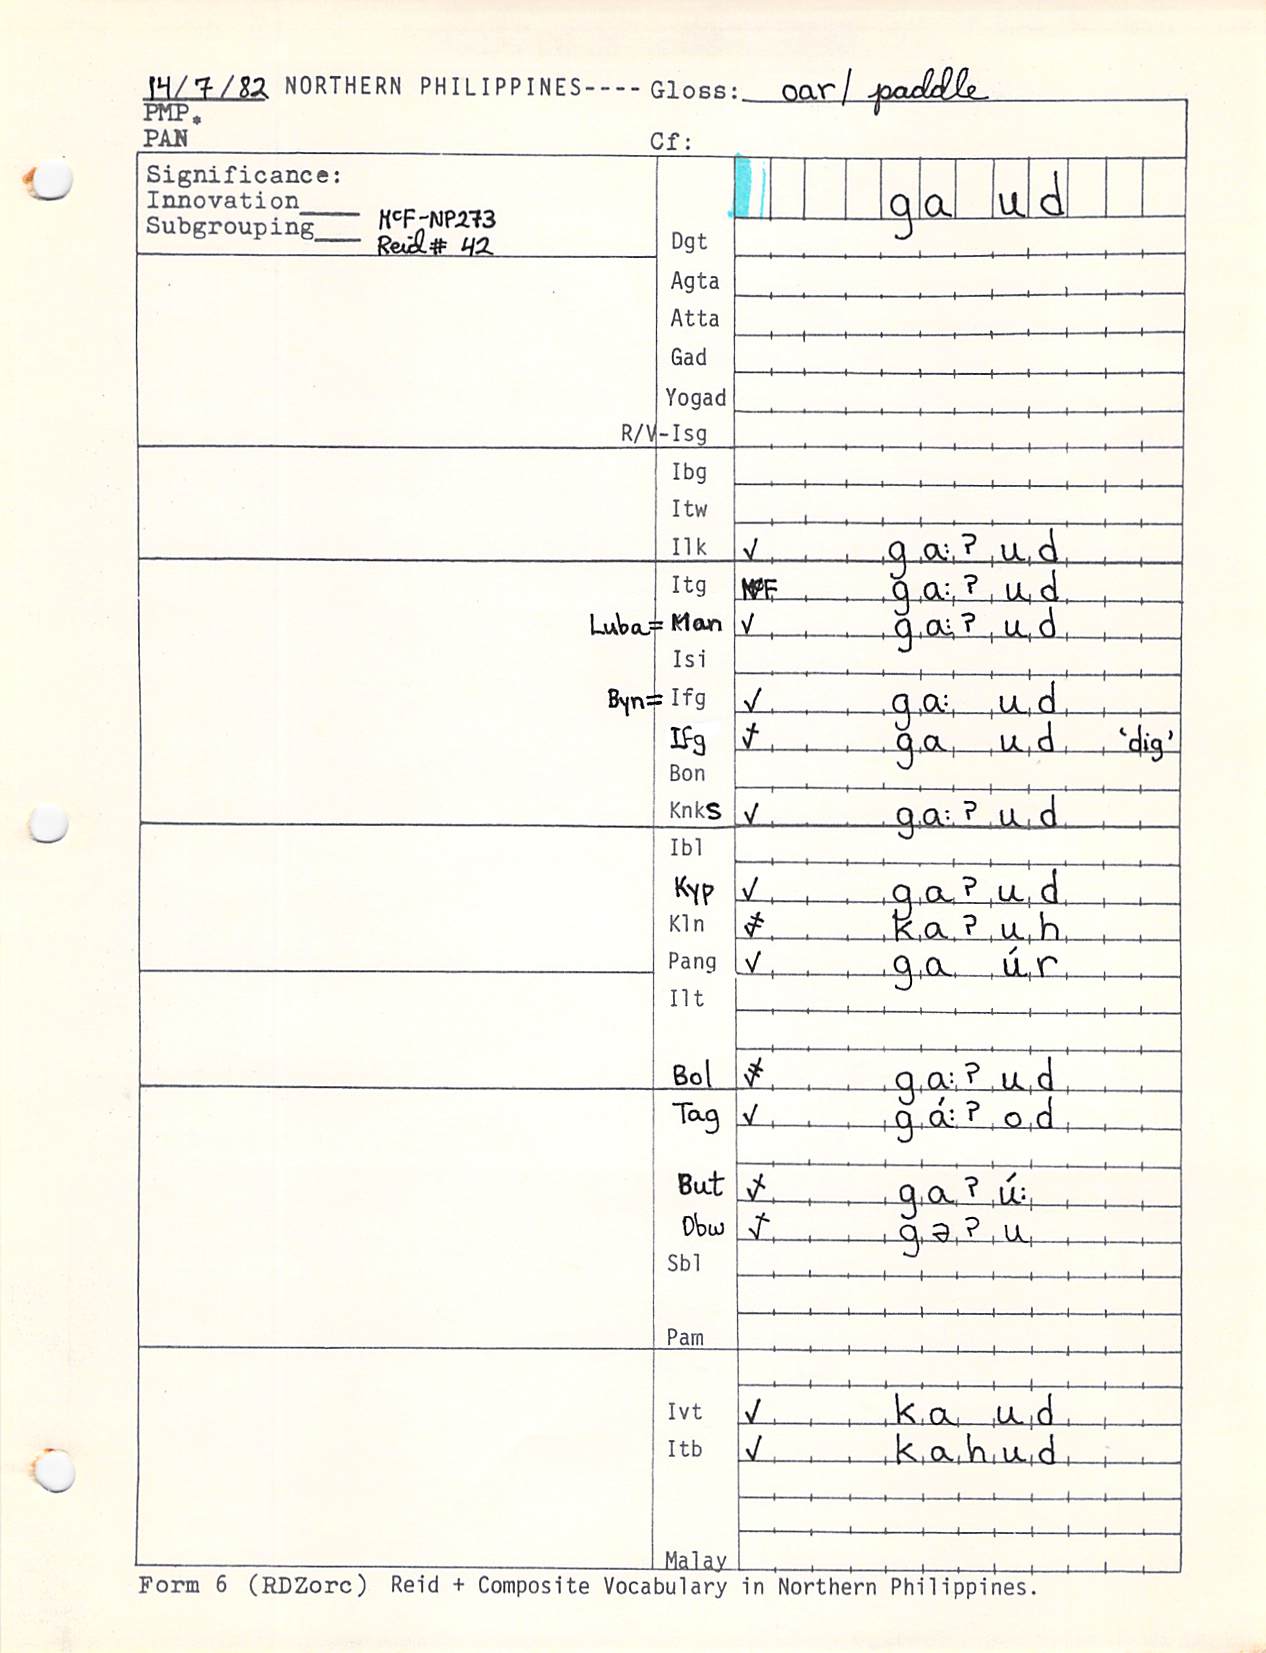 14/7/82 NORTHERN PHILIPPINES---- Gloss: oar/ paddle
PMP.
PAN Cf:
Significance:
Innovation____
Subgrouping___
McF-NP273
Reid# 42
ga ud
Dgt
Agta
Atta
Gad
Yogad
R/V-Isg
Ibg
Itw
Ilk ✓ ga:ʔud
Itg McF ga:ʔud
Luba= Man ✓ ga:ʔud
Isi
Byn= Ifg ✓ ga: ud
Ifg ✓ ga ud 'dig'
Bon
KnkS ✓ ga:ʔud
Ibl
Kyp ✓ gaʔud
Kln ✓ kaʔuh
Pang ✓ ga úr
Ilt
Bol ✓ ga:ʔud
Tag ✓ gá:ʔod
But ✓ gaʔú:
Dbw ✓ gəʔu
Sbl
Pam
Ivt ✓ ka ud
Itb ✓ kahud
Malay
Form 6 (RDZorc) Reid + Composite Vocabulary in Northern Philippines.